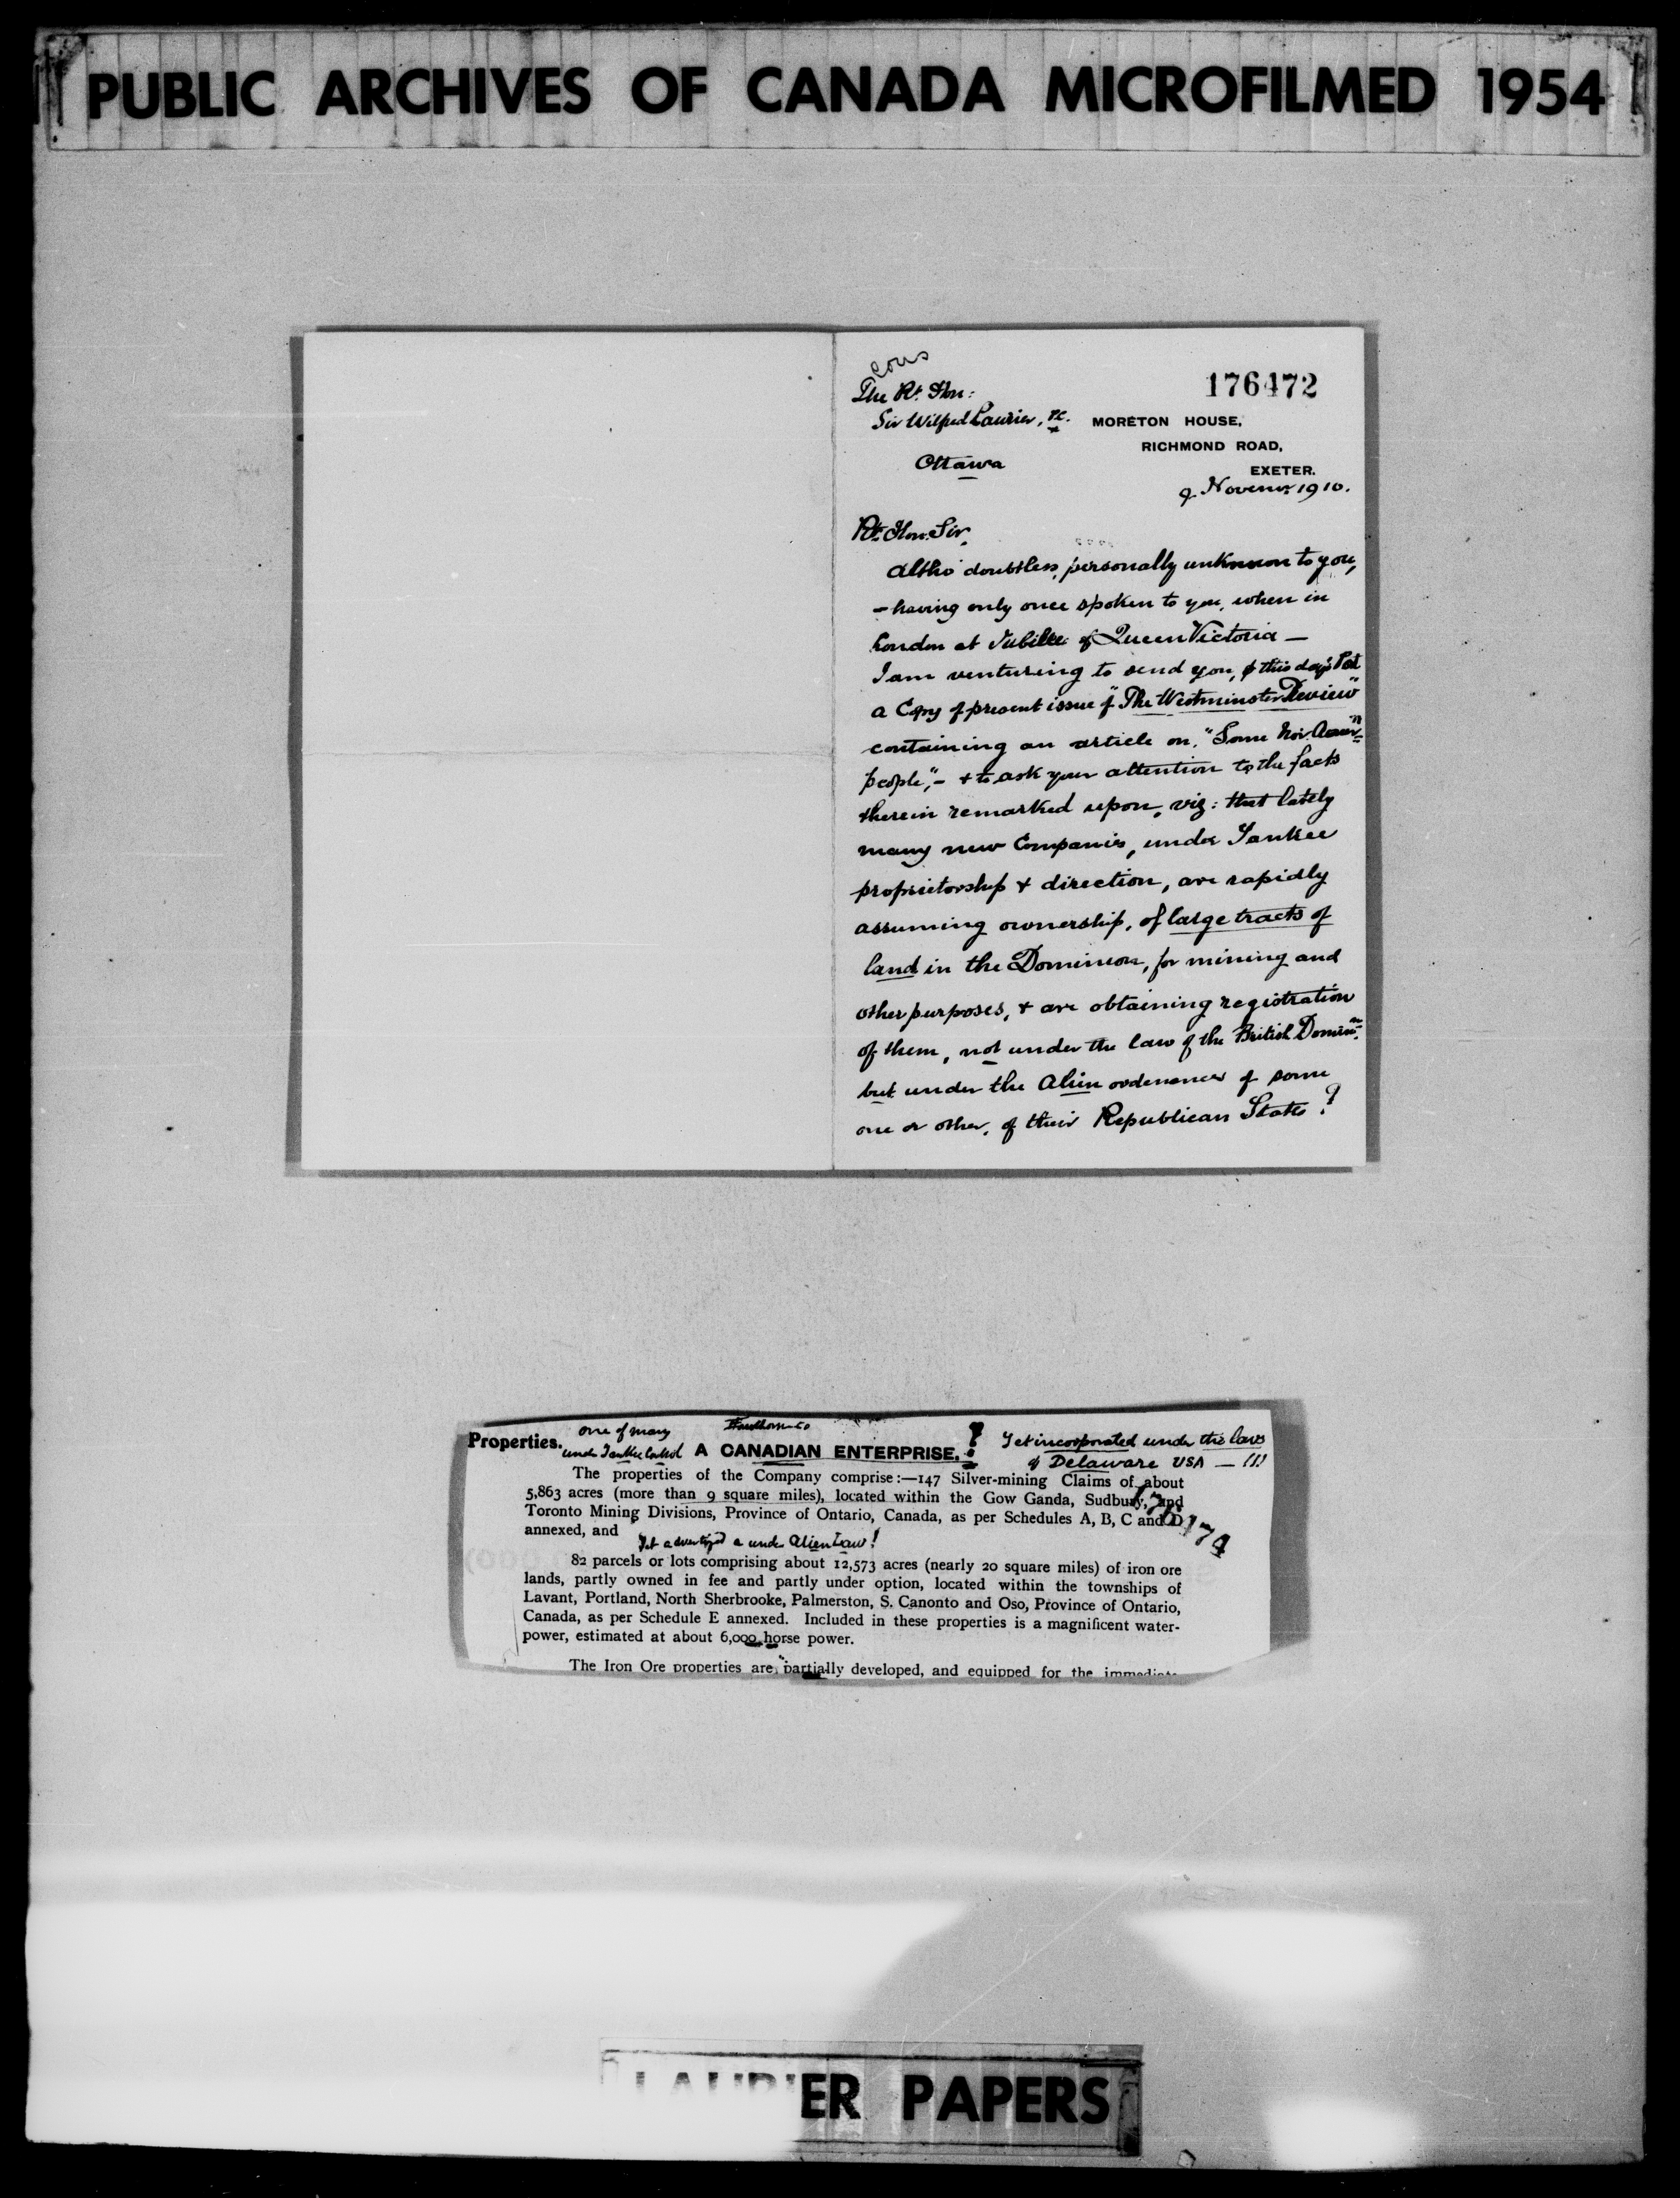 PUBLIC ARCHIVES OF CANADA MICROFILMED 1954
cons
176472
The Rt. Hon:
Sir Wilfred Laurier, P.C.
Ottawa
MORETON HOUSE,
RICHMOND ROAD,
EXETER.
9 Novemr 1910.
Rt. Hon. Sir,
Altho' doubtless, personally unknown to you,
- having only once spoken to you, when in
London at Jubilee of Queen Victoria -
I am venturing to send you, this day's Post
a Copy of present issue of "The Westminster Review"
containing an article on, "Some Nor. Amern
people", - & to ask your attention to the facts
therein remarked upon, viz: that lately
many new Companies, under Yankee
proprietorship & direction, are rapidly
assuming ownership, of large tracts of
land in the Dominion, for mining and
other purposes, & are obtaining registration
of them, not under the law of the British Dominn
but under the Alien ordenances of some
one or other, of their Republican States?
one of many
Properties. under Yankee Control A CANADIAN ENTERPRISE. ? Yet incorporated under the laws
of Delaware USA — !!!
The properties of the Company comprise:—147 Silver-mining Claims of about
5,863 acres (more than 9 square miles), located within the Gow Ganda, Sudbury, and
Toronto Mining Divisions, Province of Ontario, Canada, as per Schedules A, B, C and D
annexed, and
Yet advertized a under Alien Law!
82 parcels or lots comprising about 12,573 acres (nearly 20 square miles) of iron ore
lands, partly owned in fee and partly under option, located within the townships of
Lavant, Portland, North Sherbrooke, Palmerston, S. Canonto and Oso, Province of Ontario,
Canada, as per Schedule E annexed. Included in these properties is a magnificent water-
power, estimated at about 6,000 horse power.
The Iron Ore properties are partially developed, and equipped for the immediate
LAURIER PAPERS